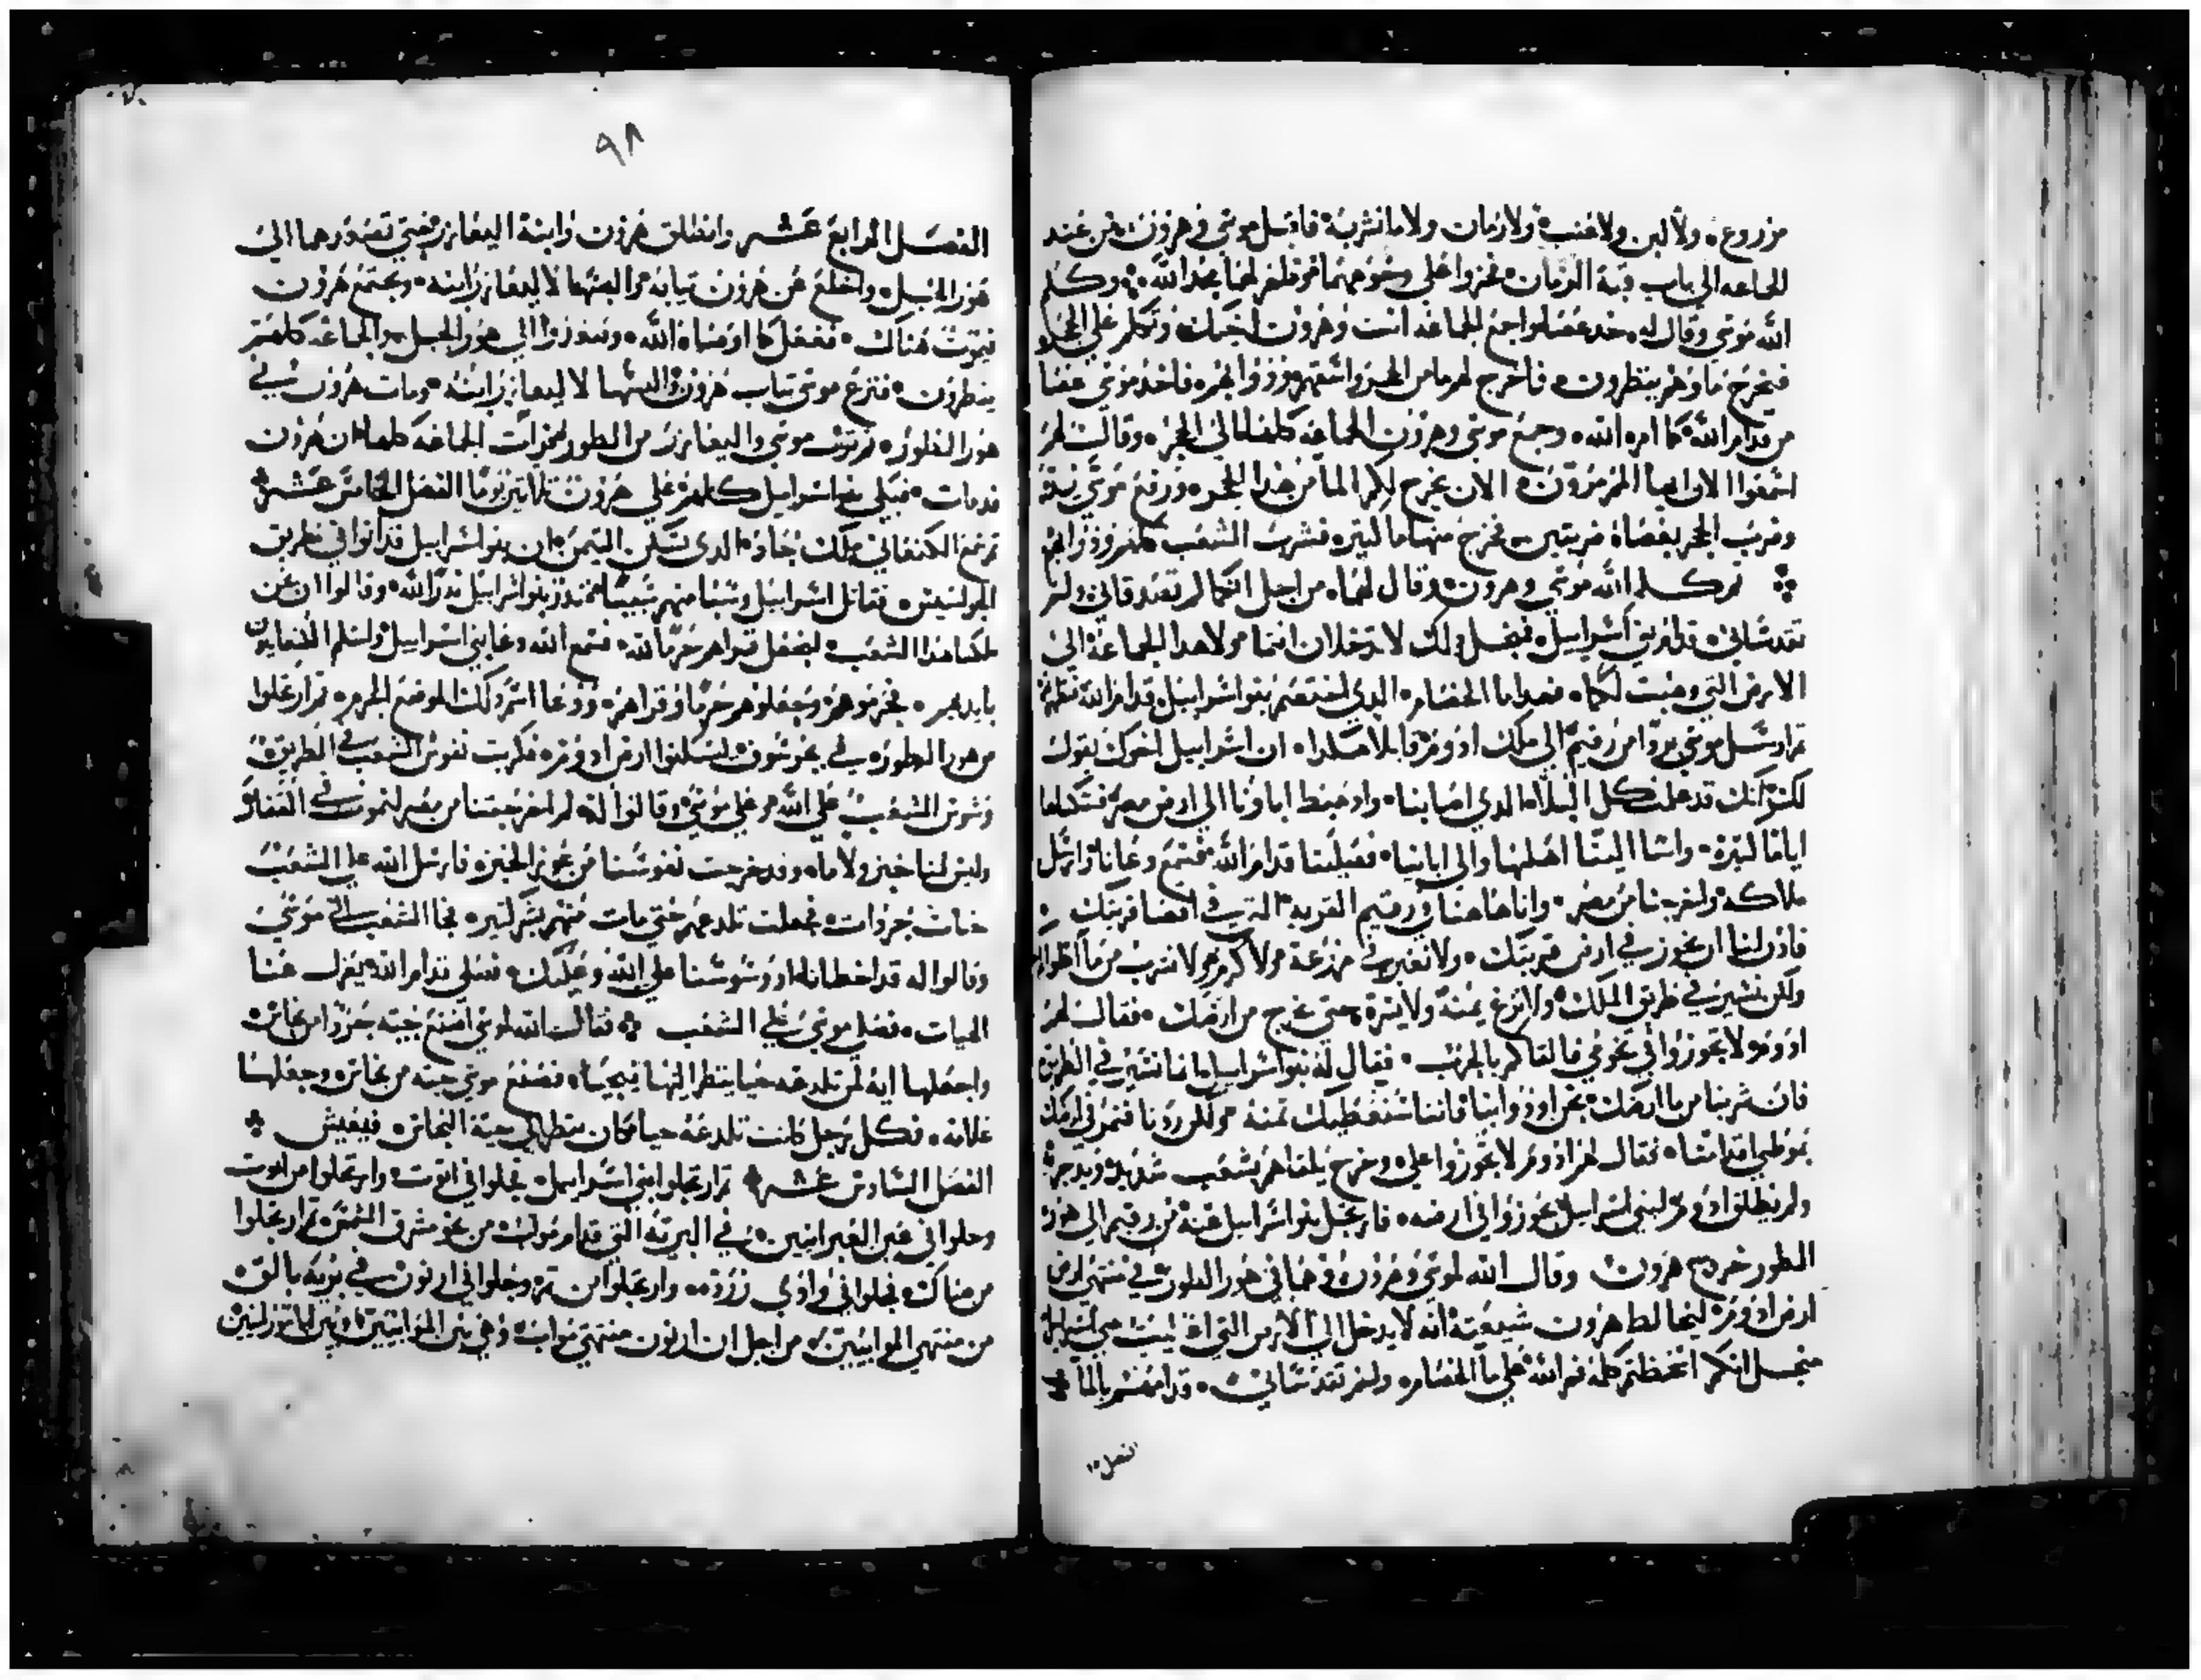 مزروع ولا لبن ولا عنب ولا رمان ولا ما نشربه فاقبل موسي و هرون من عند
الجماعه الي باب قبة الزمان فخروا علي وجوههما فظهر لهما مجد الله وكلم
الله موسي وقال له خد عصا واجمع الجماعه انت وهرون اخيك وتكلم علي الحجر
فيخرج ما وهم ينظرون فاخرج لهم ما من الحجر واسقهم ودوابهم فاخد موسي عصا
من قدام الله كما امره الله وجمع موسي وهرون الجماعه كلها الي الحجر وقال لهم
اسمعوا الان ايها الممرمرون الان يخرج لكم الما من هدا الحجر ورفع موسي يده
وضرب الحجر بعصاه ضربتين فخرج منها ما كتير فشرب الشعب كلهم ودوابهم
تم كلم الله موسي وهرون وقال لهما من اجل انكما لم تصدقاني ولم
تقدساني قدام بني اسراييل فبحل دلك لا تدخلان انتما ولا هدا الجماعة الي
الارض التي وهبت لكما فهدا ما الخصام الدي اختصم بنوا اسراييل قدام الله
تم ارسل موسي بردا من رقيم الي ملك ادوم قايلا هكدا ان اسراييل اخوك يقول
لك انك قد علمت كل البلا الدي اصابنا وادهبط اباونا الي ارض مصر فسكناها
اياما كتيرة واسا الينا اهلها والي ابابنا فصلينا قدام الله فسمع دعانا وارسل
ملاكه واخرجنا من مصر وانا هاهنا في رقيم القريه التي في اقصا قريتك
فادن لنا ان نجوز في ارض قريتك ولا نعبر في مزرعة ولا كرم ولا نشرب من ما
ولكن نسير في طريق الملك ولا نزغ يمنه ولا يسرة حتي نخرج من ارضك فقال لهم
ادوم لا تجوزوا في تخومي فالقاكم بالحرب فقال له بنوا اسراييل انما نسير في الطريق
فان شربنا من ما ارضك نحن او دوابنا فاننا سنعطيك تمنه ولكن دعنا نمر في ارضك
بموطي اقدامنا فقال لهم ادوم لا تجوزوا علي وخرج يلقاهم بشعب شديد
ولم يطلق ادوم لبني اسراييل يجوزوا في ارضه فارتحل بنوا اسراييل عنه من رقيم الي هور
الطور خروج هرون وقال الله لموسي وهرون وهما في هور الطور في منتهي ارض
ارض ادوم ليخالط هرون شيعته انه لا يدخل الي الارض التي اعطيت بني اسراييل
من اجل انكم اسخطتم كلمة فم الله علي ما الخصام ولم تقدساني قدامهم بالما
الفصل
٩٨
الفصل الرابع عشر وانطلق هرون وابنة اليعازر حتي تصعدهما الي
هور الجبل واخلع عن هرون تيابه والبسها لاليعازر ابنه ويجتمع هرون
فيموت هناك ففعل كما اوصاه الله وصعدوا الي هور الجبل والجماعه كلهم
ينظرون فنزع موسي تياب هرون والبسها لاليعازر ابنه ومات هرون في
هور الطور ونزل موسي واليعازر من الطور فرات الجماعه كلها ان هرون
قد مات فبكي بنوا اسراييل كلهم علي هرون تلاتين يوما الفصل الخامس عشر
تم سمع الكنعاني ملك جادر الدي يسكن التيمن ان بنوا اسراييل قد اتوا في طريق
الجواسيس فقاتل اسراييل وسبا منهم سبيا فندر بنوا اسراييل ندرا لله وقالوا ان نحن
ملكنا هدا الشعب لنجعل قراهم حرما لله فسمع الله دعا بني اسراييل واسلم الكنعانيون
بايديهم فحرموهم وجعلوهم حرما وقراهم ودعا اسم دلك الموضع الحرم تم ارتحلوا
من هور الطور في بحر سوف ليسلكوا ارض ادوم فكربت نفوس الشعب في الطريق
وتوسوس الشعب علي الله وعلي موسي وقالوا له لم اخرجتنا من مصر لنموت في القفار
وليس لنا خبز ولا ما وقد خرجت نفوسنا من عوز الخبز فارسل الله علي الشعب
حيات جردات فجعلت تلدعهم حتي مات منهم بشر كتير فجا الشعب الي موسي
وقالوا له قد اخطانا اد وسوسنا علي الله وعليك فصلي قدام الله يعزل عنا
الحيات فصلي موسي علي الشعب فقال الله لموسي اصنع حيته جردا من نحاس
واجعلها ايه لمن تلدعه حيا ينظر اليها فيحيا فصنع موسي حيته من نحاس وجعلها
علامه فكل رجل كانت تلدعه حيا فكان ينظر الي حية النحاس فيعيش
الفصل السادس عشر تم ارتحلوا بني اسراييل فحلوا في اتوت وارتحلوا من اتوت
وحلوا في عين العبرانيين في البريه التي قدام مواب من نحو مشرق الشمس تم ارتحلوا
من هناك فحلوا في وادي زرد وارتحلوا من تم وحلوا في ارنون في بريه بالق
من منتهي الموابيين من اجل ان ارنون منتهي مواب وهي بين الموابيين وبين الامورانيين